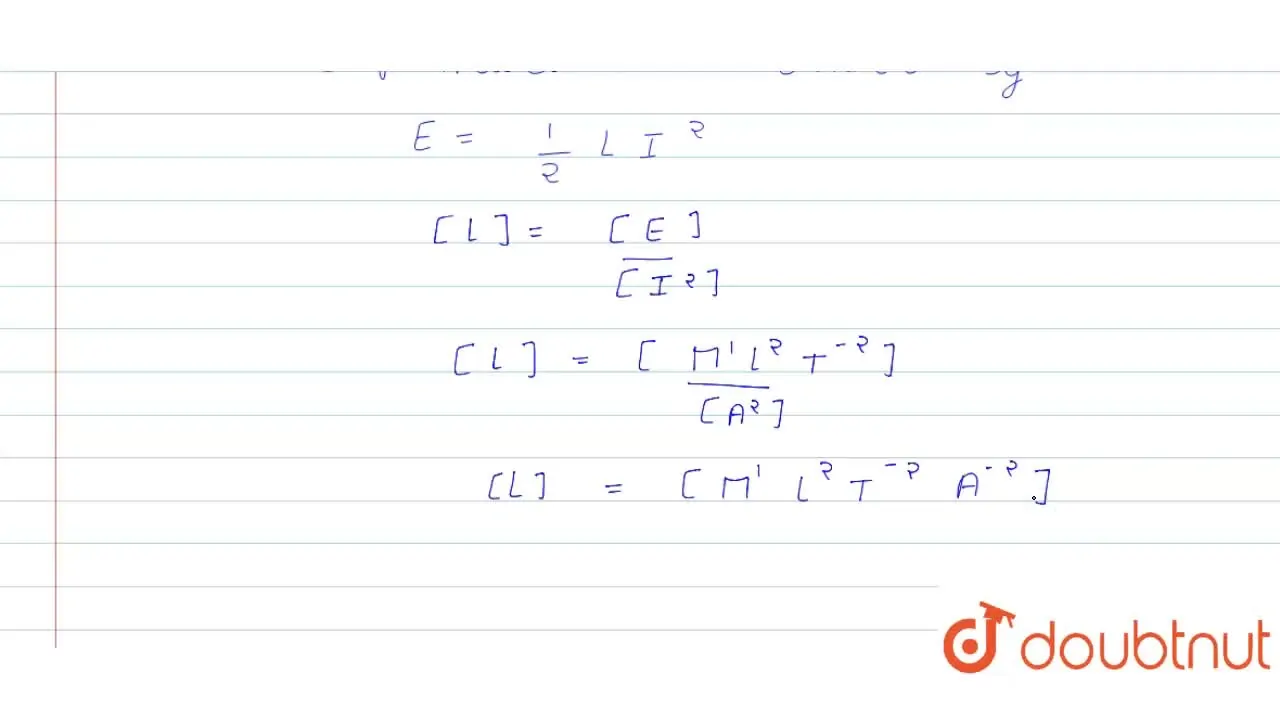 E = 1/2 L I²
[L] = [E]/[I²]
[L] = [M¹ L² T⁻²]/[A²]
[L] = [M¹ L² T⁻² A⁻²]
doubtnut